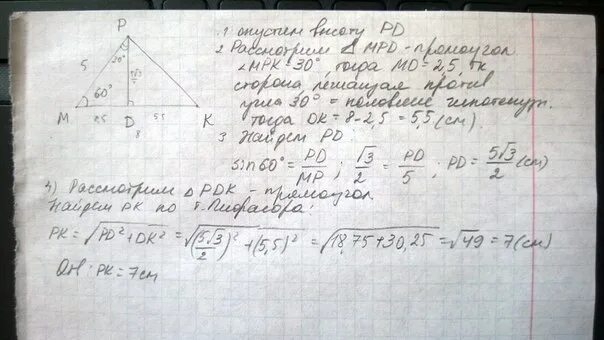 P
1 опустим высоту PD
2 Рассмотрим Δ MPD - прямоугол.
∠MPK = 30°, тогда MD = 2,5, тк
сторона лежащая против
угла 30° = половине гипотенузы.
тогда DK = 8 - 2,5 = 5,5 (см)
3 Найдем PD:
sin 60° = PD/MP ; √3/2 = PD/5 ; PD = 5√3/2 (см)
5
60°
5√3/2
M 2,5 D 5,5 K
8
4) Рассмотрим Δ PDK - прямоугол.
Найдем PK по т. Пифагора:
PK = √(PD² + DK²) = √((5√3/2)² + (5,5)²) = √(18,75 + 30,25) = √49 = 7 (см)
Отв: PK = 7 см